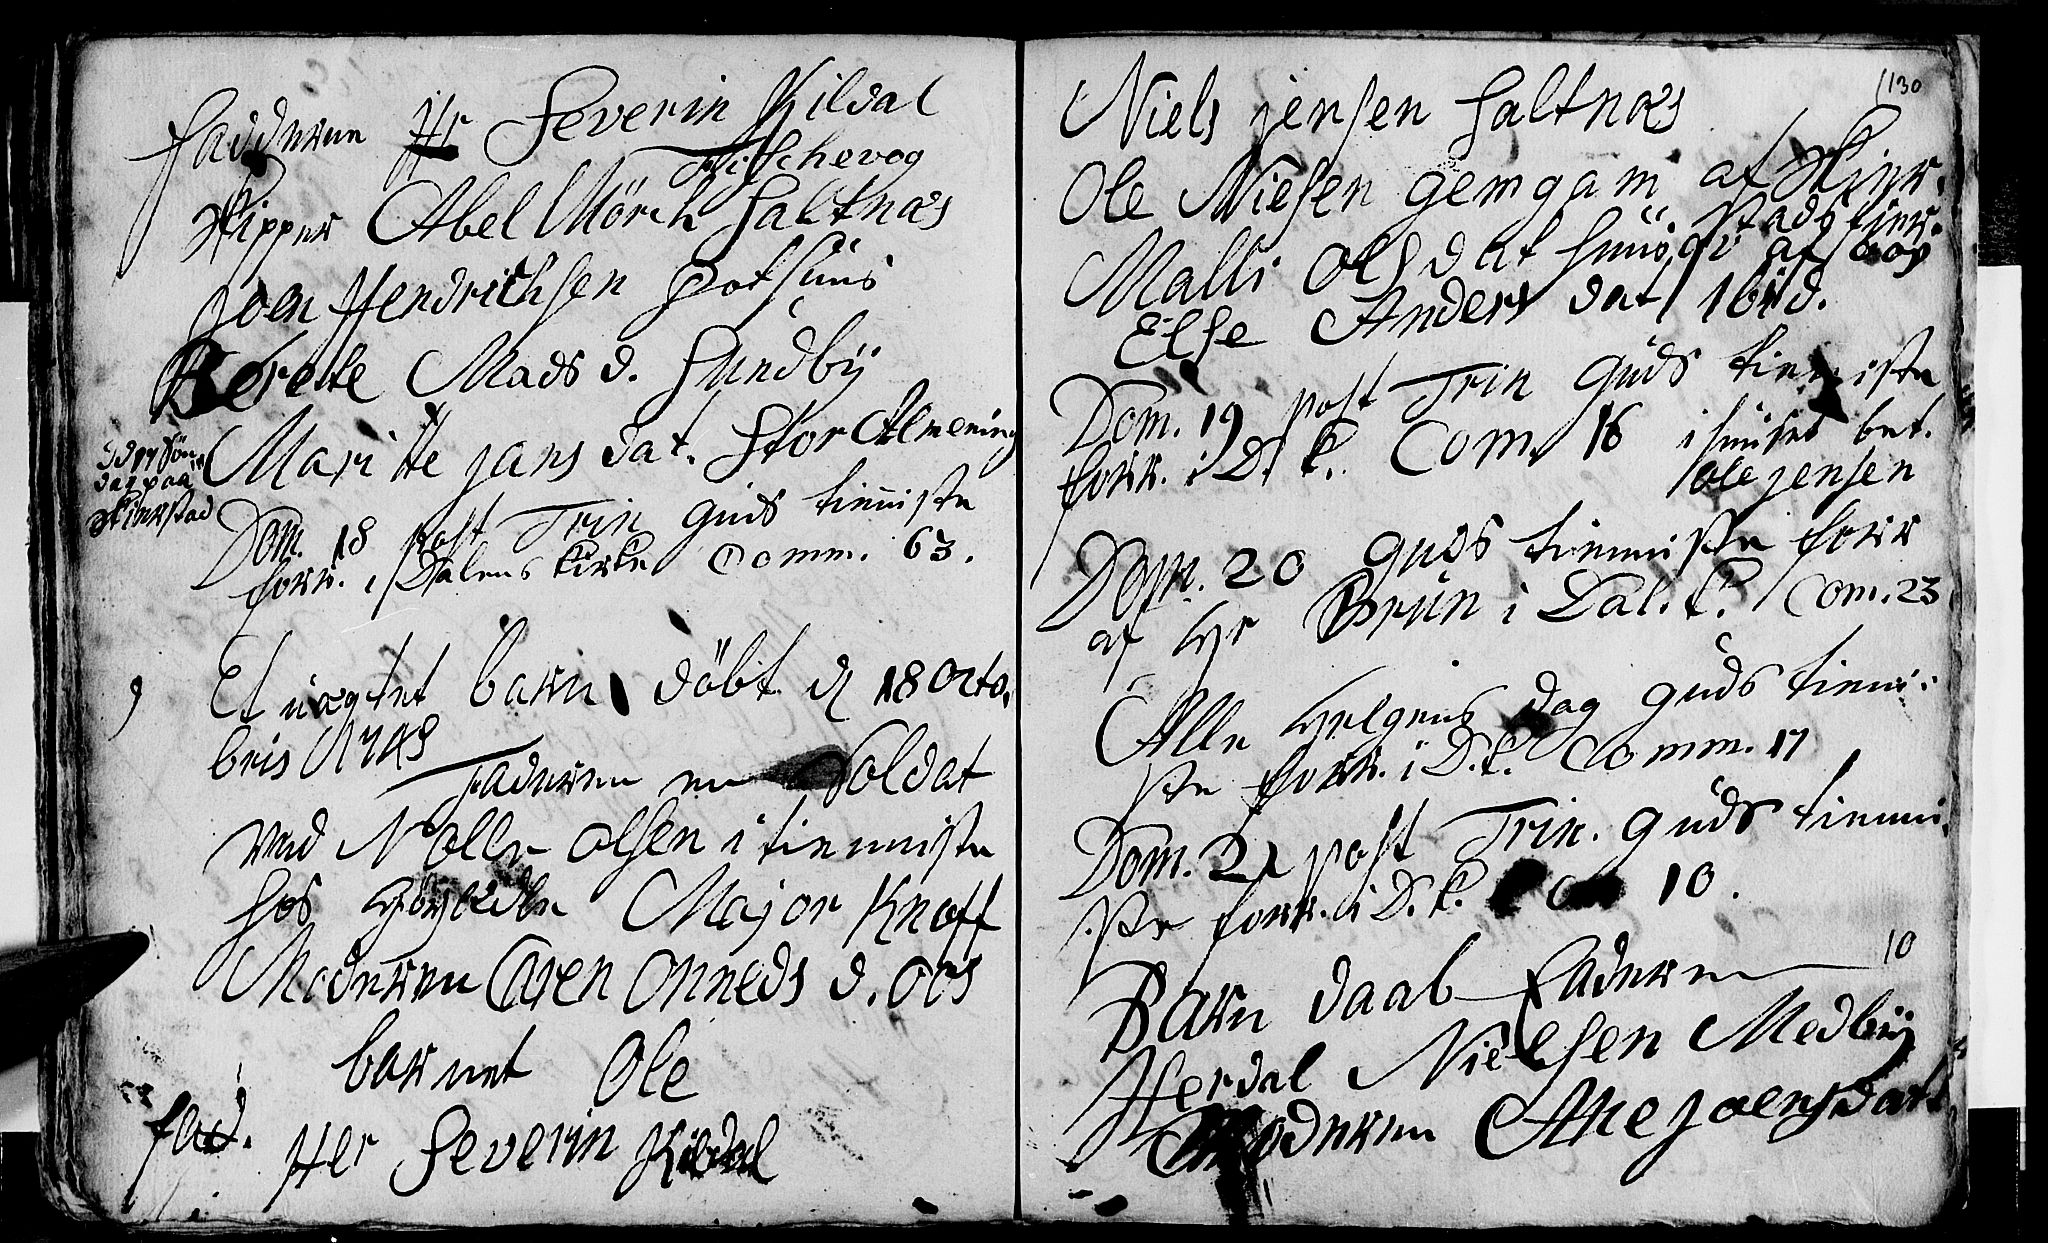 Fadderne Hr Severin Kildal
Fischevog
Skipper Abel Mörch Saltnæs
Joen Hendrichsen
Berete Mads d. Sundbÿ
Maritte jans dat. Stor Almening
Dom. 18 post Trin guds tienniste
forr. i Dalens kirke Comm. 63.
9 Et uægtet barn döbt d 18 Octo.
bris 1748
Faderen en Soldat
ved Nolle olsen i tienniste
hos Major Knoff
Moderen Caren Onneds d. oos
barnet Ole
fad. Her Severin Kildal
130
Niels jensen Saltnæs
Ole Nielsen gemgam af Skier.
stads fier.
Malli Ols dat huus af oos
Else Anders dat ibid.
Dom. 19 post Trin guds tienniste
forr. i D. k. Com. 16 i huuset bet.
Ole jensen
Dom. 20 guds tienniste forr
af Hr Brün i Dal. k. Com. 23
Alle Helgens dag guds tieni-
ste forr. i D. k. Comm. 17
Dom. 21 post Trin. guds tienni-
ste forr. i D. k. 10.
10
Barn daab Faderen
Herdal Nielsen Medbÿ
Moderen Ane joensdat